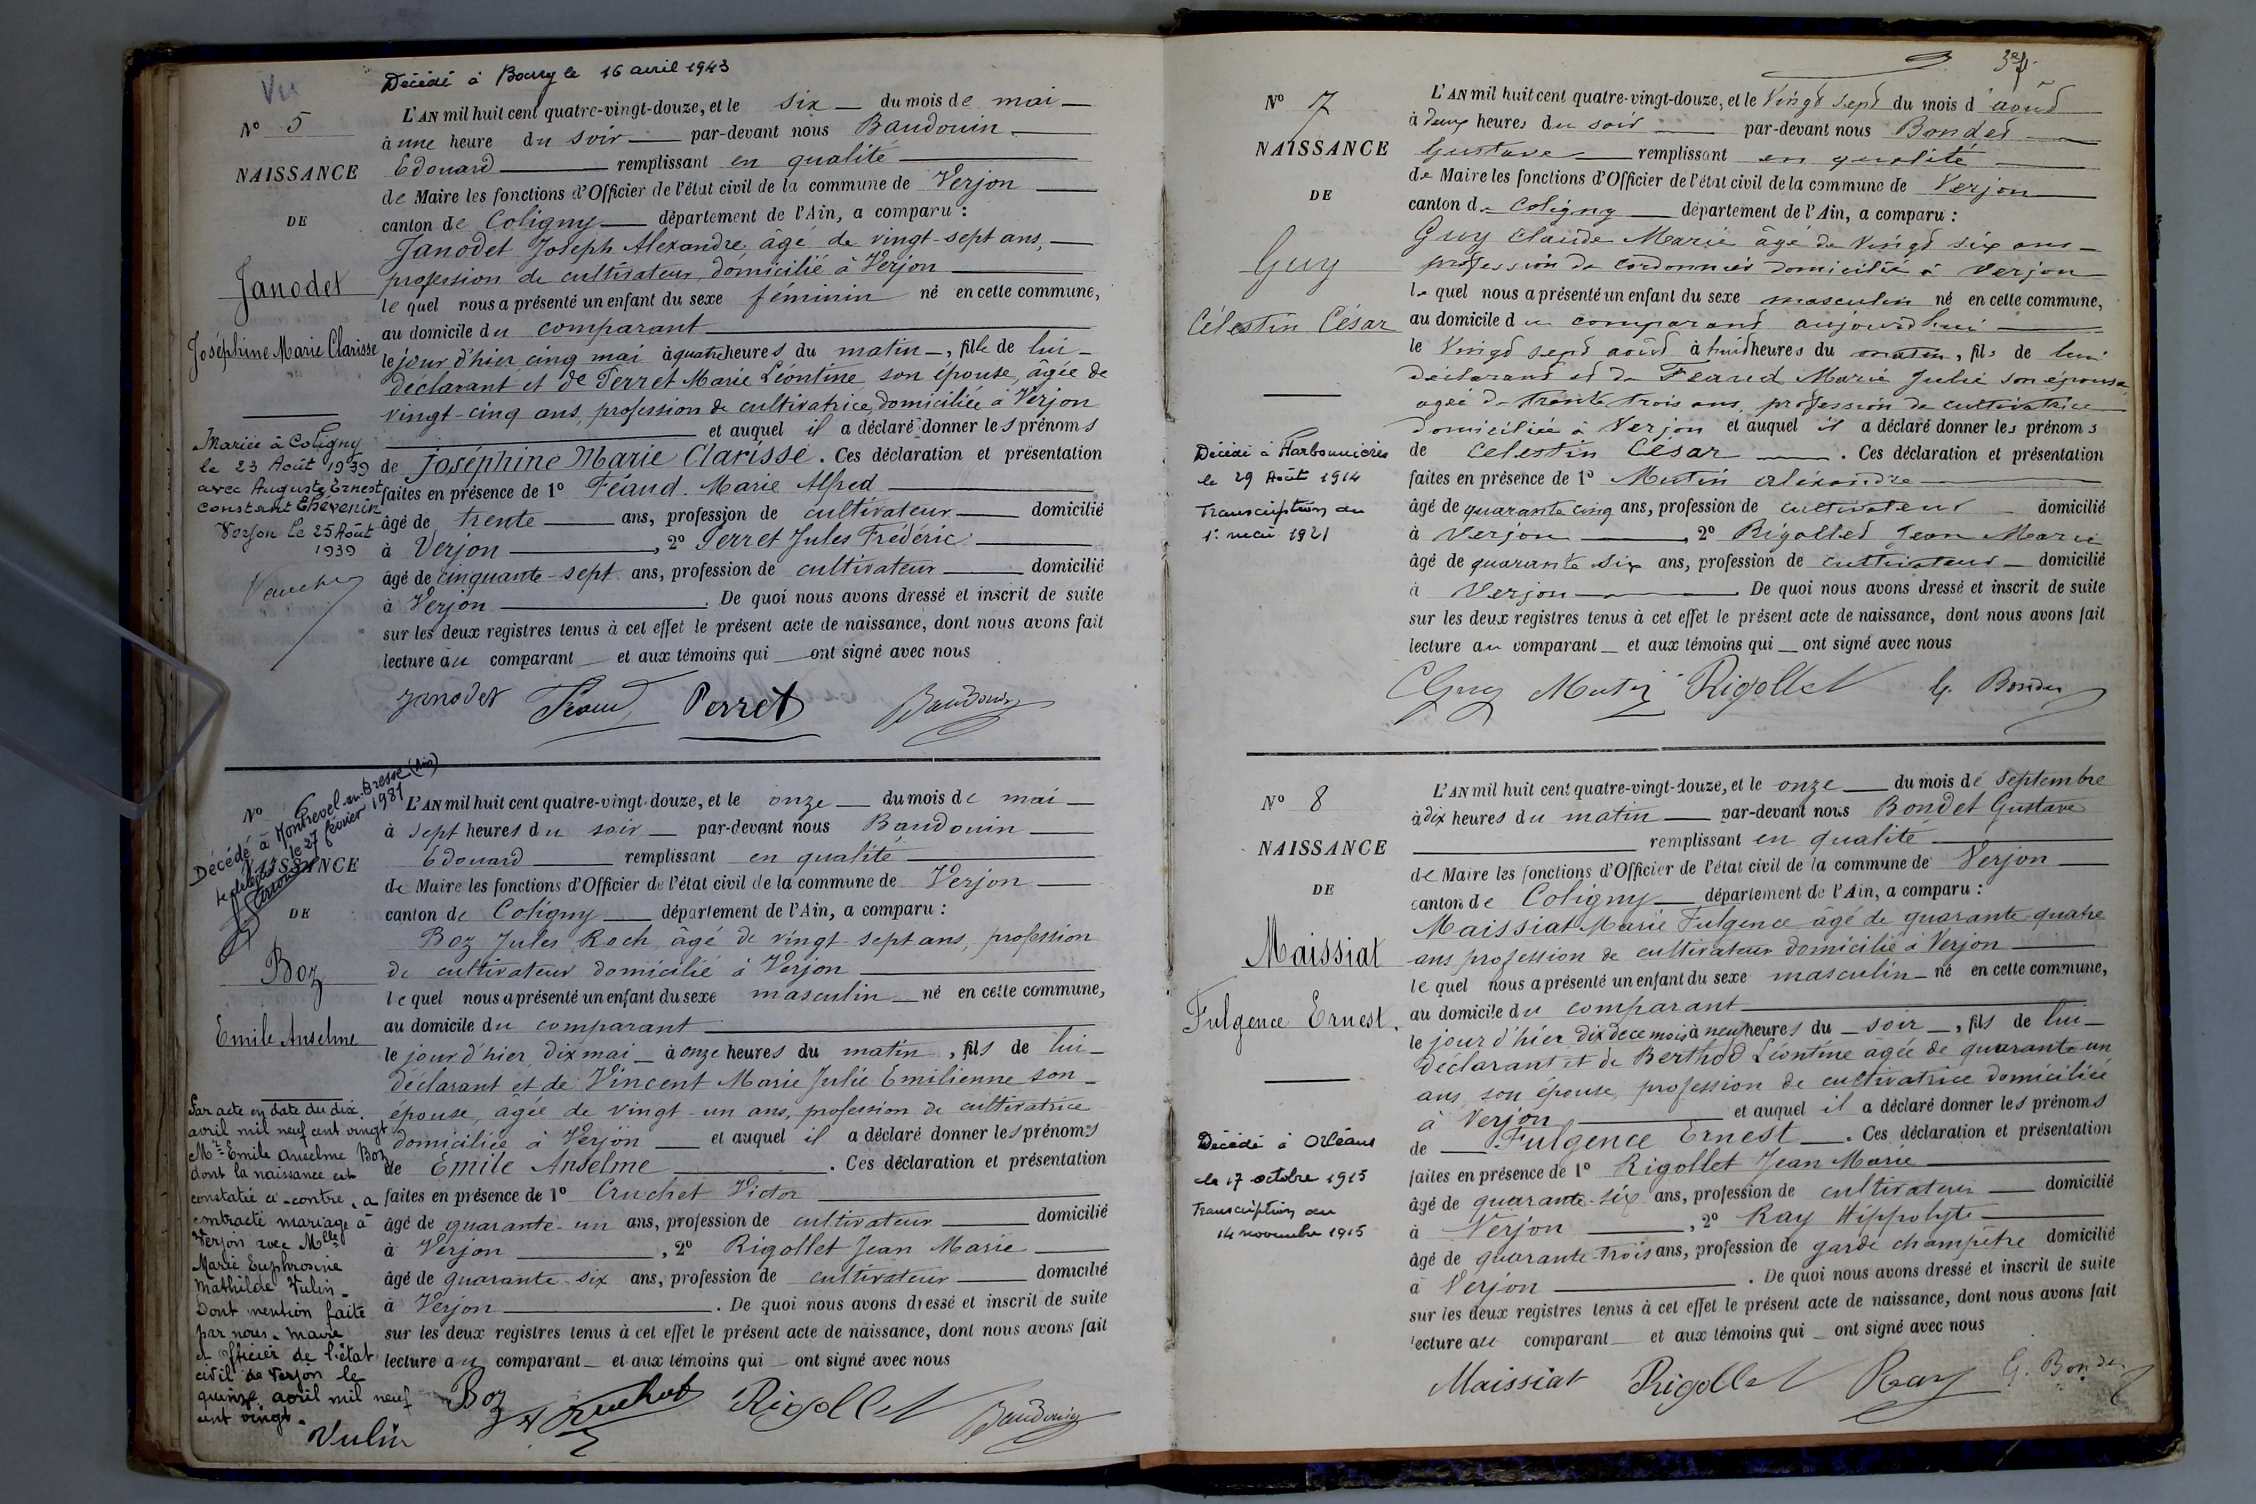 Vu
Décédé à Bourg le 16 avril 1943
N° 5
NAISSANCE
DE
Janodet
Joséphine Marie Clarisse
Mariée à Coligny
le 23 Août 1939
avec Auguste Ernest
Constant Thevenin
Verjon le 25 Août
1939
L'AN mil huit cent quatre-vingt-douze, et le six du mois de mai
à une heure du soir par-devant nous Baudouin
Edouard remplissant en qualité
de Maire les fonctions d'Officier de l'état civil de la commune de Verjon
canton de Coligny département de l'Ain, a comparu :
Janodet Joseph Alexandre, âgé de vingt-sept ans,
profession de cultivateur, domicilié à Verjon
le quel nous a présenté un enfant du sexe féminin né en cette commune,
au domicile du comparant
le jour d'hier cinq mai à quatre heures du matin, fille de lui
déclarant et de Perret Marie Léontine son épouse, âgée de
vingt-cinq ans, profession de cultivatrice, domiciliée à Verjon
et auquel il a déclaré donner les prénoms
de Joséphine Marie Clarisse. Ces déclaration et présentation
faites en présence de 1° Féaud Marie Alfred
âgé de trente ans, profession de cultivateur domicilié
à Verjon, 2° Perret Jules Frédéric
âgé de cinquante-sept ans, profession de cultivateur domicilié
à Verjon. De quoi nous avons dressé et inscrit de suite
sur les deux registres tenus à cet effet le présent acte de naissance, dont nous avons fait
lecture au comparant et aux témoins qui ont signé avec nous
Janodet Féaud Perret Baudouin
N° 6
Décédé à Montrevel-en-Bresse (Ain)
le 27 février 1981
NAISSANCE
DE
Boz
Emile Anselme
Par acte en date du dix
avril mil neuf cent vingt
Mr Emile Anselme Boz
dont la naissance est
constatée ci-contre, a
contracté mariage à
Verjon avec Mlle
Marie Euphrosine
Mathilde Vulin.
Dont mention faite
par nous, maire
et officier de l'état
civil de Verjon le
quinze avril mil neuf
cent vingt.
Vulin
L'AN mil huit cent quatre-vingt-douze, et le onze du mois de mai
à sept heures du soir par-devant nous Baudouin
Edouard remplissant en qualité
de Maire les fonctions d'Officier de l'état civil de la commune de Verjon
canton de Coligny département de l'Ain, a comparu :
Boz Jules Roch, âgé de vingt-sept ans, profession
de cultivateur domicilié à Verjon
le quel nous a présenté un enfant du sexe masculin né en cette commune,
au domicile du comparant
le jour d'hier dix mai à onze heures du matin, fils de lui
déclarant et de Vincent Marie Julie Emilienne son
épouse, âgée de vingt-un ans, profession de cultivatrice
domiciliée à Verjon et auquel il a déclaré donner les prénoms
de Emile Anselme. Ces déclaration et présentation
faites en présence de 1° Cruchet Victor
âgé de quarante-un ans, profession de cultivateur domicilié
à Verjon, 2° Rigollet Jean Marie
âgé de quarante-six ans, profession de cultivateur domicilié
à Verjon. De quoi nous avons dressé et inscrit de suite
sur les deux registres tenus à cet effet le présent acte de naissance, dont nous avons fait
lecture au comparant et aux témoins qui ont signé avec nous
Boz Cruchet Rigollet Baudouin
N° 7
NAISSANCE
DE
Guy
Célestin César
Décédé à Harbonnières
le 29 Août 1914
Transcription du
1er mai 1921
L'AN mil huit cent quatre-vingt-douze, et le Vingt sept du mois d'août
à deux heures du soir par-devant nous Bondet
Gustave remplissant en qualité
de Maire les fonctions d'Officier de l'état civil de la commune de Verjon
canton de Coligny département de l'Ain, a comparu :
Guy Claude Marie âgé de Vingt six ans
profession de cordonnier domicilié à Verjon
le quel nous a présenté un enfant du sexe masculin né en cette commune,
au domicile du comparant aujourd'hui
le Vingt sept août à huit heures du matin, fils de lui
déclarant et de Féaud Marie Julie son épouse
agée de trente trois ans, profession de cultivatrice
domiciliée à Verjon et auquel il a déclaré donner les prénoms
de Celestin César. Ces déclaration et présentation
faites en présence de 1° Mutin Alexandre
âgé de quarante cinq ans, profession de cultivateur domicilié
à Verjon, 2° Rigollet Jean Marie
âgé de quarante six ans, profession de cultivateur domicilié
à Verjon De quoi nous avons dressé et inscrit de suite
sur les deux registres tenus à cet effet le présent acte de naissance, dont nous avons fait
lecture au comparant et aux témoins qui ont signé avec nous
CGuy Mutin Rigollet G. Bondet
N° 8
NAISSANCE
DE
Maissiat
Fulgence Ernest.
Décédé à Orléans
le 17 octobre 1915
Transcription du
14 novembre 1915
L'AN mil huit cent quatre-vingt-douze, et le onze du mois de septembre
à dix heures du matin par-devant nous Bondet Gustave
remplissant en qualité
de Maire les fonctions d'Officier de l'état civil de la commune de Verjon
canton de Coligny département de l'Ain, a comparu :
Maissiat Marie Fulgence âgé de quarante-quatre
ans profession de cultivateur domicilié à Verjon
le quel nous a présenté un enfant du sexe masculin né en cette commune,
au domicile du comparant
le jour d'hier dix de ce mois à neuf heures du soir, fils de lui
déclarant et de Berthod Léontine âgée de quarante-un
ans son épouse, profession de cultivatrice domiciliée
à Verjon et auquel il a déclaré donner les prénoms
de Fulgence Ernest. Ces déclaration et présentation
faites en présence de 1° Rigollet Jean Marie
âgé de quarante-six ans, profession de cultivateur domicilié
à Verjon, 2° Ray Hippolyte
âgé de quarante-trois ans, profession de garde champêtre domicilié
à Verjon. De quoi nous avons dressé et inscrit de suite
sur les deux registres tenus à cet effet le présent acte de naissance, dont nous avons fait
lecture au comparant et aux témoins qui ont signé avec nous
Maissiat Rigollet Ray G. Bondet